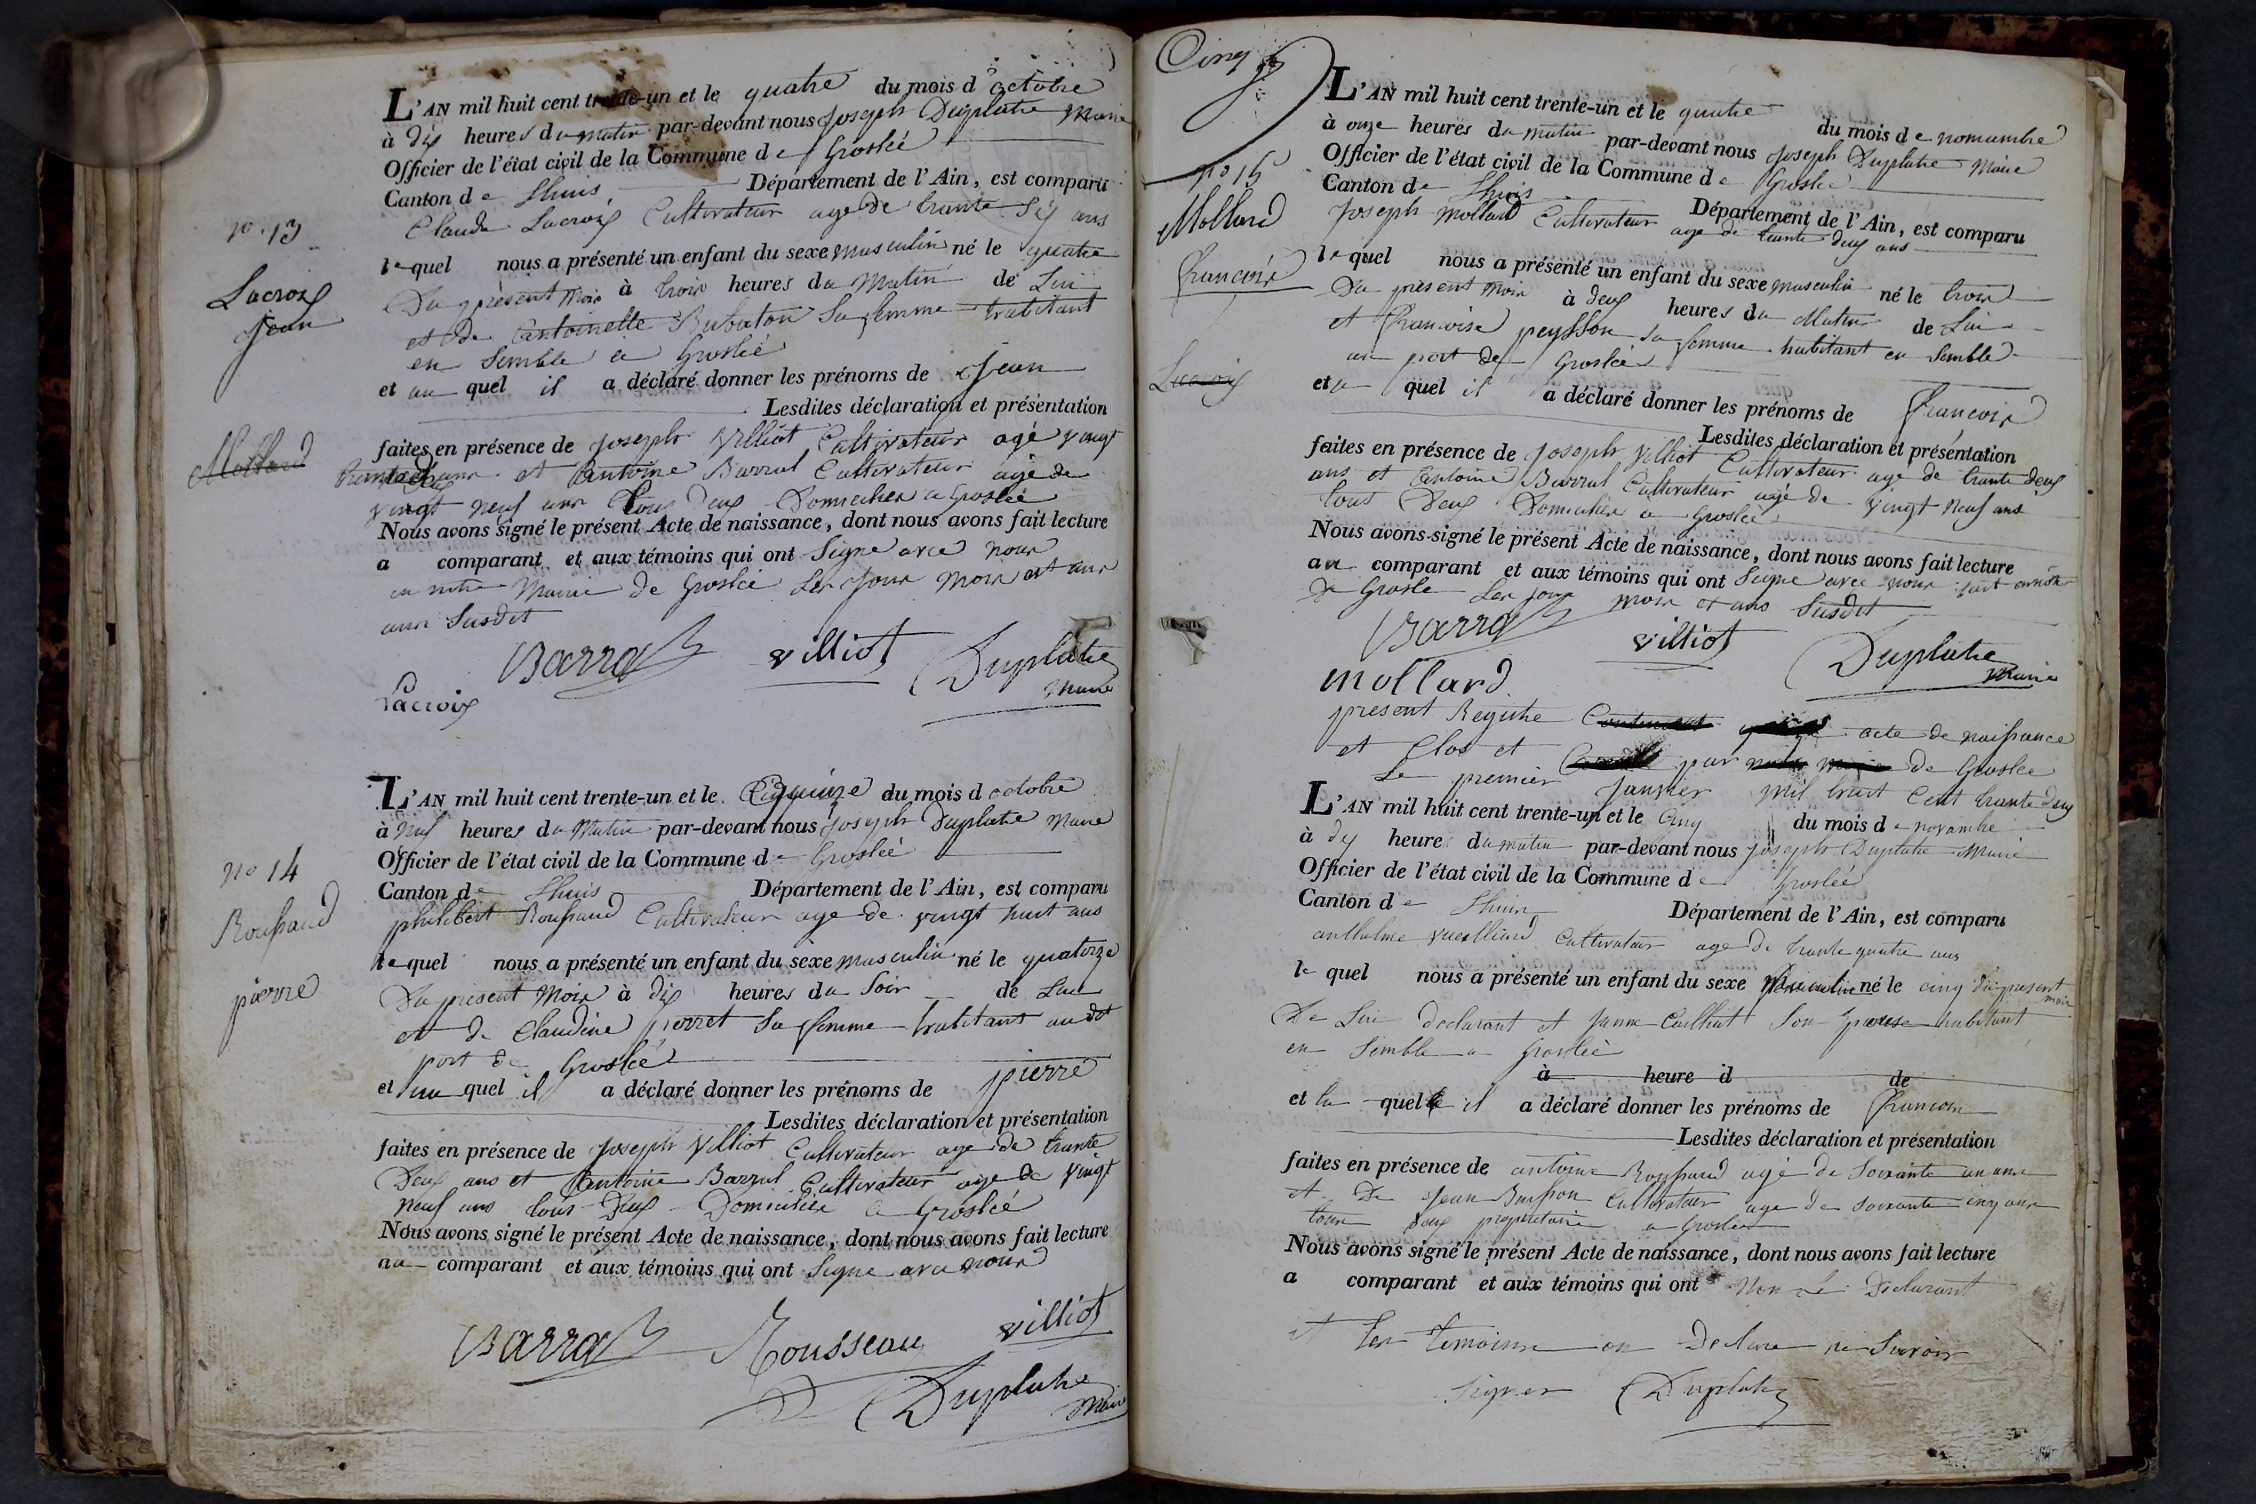 L'AN mil huit cent trente-un et le quatre du mois d'octobre
à dix heures du matin par-devant nous Joseph Duplatre Maire
Officier de l'état civil de la Commune de Groslée
Canton de Lhuis Département de l'Ain, est comparu
Claude Lacroix Cultivateur age de trante Six ans
no. 13
Lacroix
Jean
lequel nous a présenté un enfant du sexe masculin né le quatre
Du present mois à trois heures du Matin de Lui
et de antoinette Rubaton Sa femme habitant
en Semble a Groslée
et au quel il a déclaré donner les prénoms de Jean
Lesdites déclaration et présentation
Mollard
faites en présence de Joseph Villiot Cultivateur agé vingt
trante deux ans et antoine Barral Cultivateur agé de
vingt neuf ans tous deux Domicilies a Groslée
Nous avons signé le présent Acte de naissance, dont nous avons fait lecture
a comparant et aux témoins qui ont Signe avec nous
en notre Mairie de Groslée Les Jour Mois et ans
ans Susdit
Barral villiot Duplatre
Maire
Lacroix
L'AN mil huit cent trente-un et le quinze du mois d octobre
à neuf heures du Matin par-devant nous Joseph Duplatre Maire
Officier de l'état civil de la Commune de Groslée
Canton de Lhuis Département de l'Ain, est comparu
no 14
Roussaud
pierre
philibert Roussaud Cultivateur age de vingt huit ans
lequel nous a présenté un enfant du sexe masculin né le quatorze
Du present Mois à dix heures du Soir de Lui
et de Claudine pierret Sa femme habitant au dt
port de Groslée
et au quel il a déclaré donner les prénoms de pierre
Lesdites déclaration et présentation
faites en présence de Joseph Villiot Cultivateur age de trante
Deux ans et antoine Barral Cultivateur age de vingt
neuf ans tous Deux Domiciliés a Groslée
Nous avons signé le présent Acte de naissance, dont nous avons fait lecture
au comparant et aux témoins qui ont Signe avec nous
Barral Rousseau villiot
Duplatre
Maire
Cinq
L'AN mil huit cent trente-un et le quatre du mois de novambre
à onze heures du matin par-devant nous Joseph Duplatre Maire
Officier de l'état civil de la Commune de Groslée
Canton de Lhuis Département de l'Ain, est comparu
no 15
Mollard
francois
Joseph Mollard Cultivateur age de trante deux ans
lequel nous a présenté un enfant du sexe masculin né le trois
Du present mois à deux heures du Matin de Lui
et francoise peysson sa femme habitant en Semble
au port de Groslée
Lacroix
et a quel il a déclaré donner les prénoms de francois
Lesdites déclaration et présentation
faites en présence de Joseph Villiot Cultivateur age de trante deux
ans et antoine Barral Cultivateur agé de vingt neuf ans
tous Deux Domiciliés a Groslée
Nous avons signé le présent Acte de naissance, dont nous avons fait lecture
au comparant et aux témoins qui ont Signe avec nous
De Grosle Les jour mois et ans Susdit
Barral villiot Duplatre
Maire
mollard
present Registre acte de naissance
et Clos et par de Groslée
Le premier Janvier mil huit Cent trante deux
L'AN mil huit cent trente-un et le Cinq du mois de novambre
à dix heures du matin par-devant nous Joseph Duplatre Maire
Officier de l'état civil de la Commune de Groslée
Canton de Lhuis Département de l'Ain, est comparu
anthelme Cultivateur age de trante quatre ans
le quel nous a présenté un enfant du sexe masculin né le cinq du present
mois
De Lui declarant et Janne Son epouse habitant
en Semble a Groslée
à heure d de
et la quel il a déclaré donner les prénoms de francois
Lesdites déclaration et présentation
faites en présence de antoine Roussaud agé de Soixante un ans
et De Jean Cultivateur age de soixante cinq ans
tous Deux propriétaire a Groslée
Nous avons signé le présent Acte de naissance, dont nous avons fait lecture
a comparant et aux témoins qui ont Non Le Declarant
et Les temoins on Declare ne Savoir
signer Duplatre